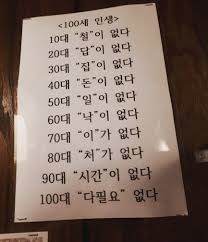 <100세 인생>
10대 “철”이 없다
20대 “답”이 없다
30대 “집”이 없다
40대 “돈”이 없다
50대 “일”이 없다
60대 “낙”이 없다
70대 “이”가 없다
80대 “처”가 없다
90대 “시간”이 없다
100대 “다필요” 없다